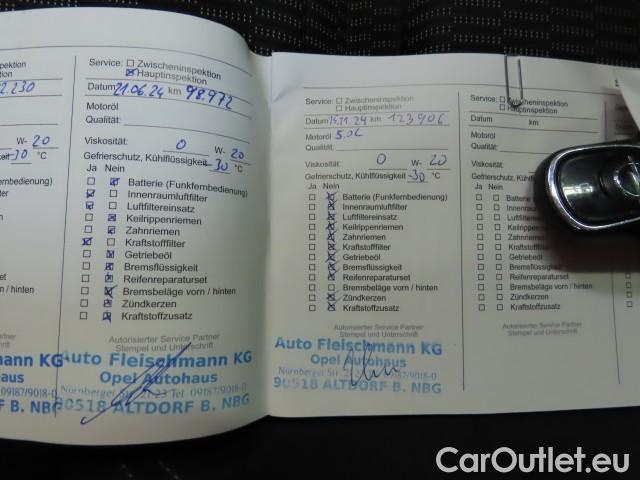 2.230
W- 20
-30 °C
nbedienung)
n / hinten
mann KG
aus
09187/9018-0
F B. NBG
Service: Zwischeninspektion
Hauptinspektion
Datum 21.06.24 km 98.972
Motoröl
Qualität:
Viskosität: 0 W- 20
Gefrierschutz, Kühlflüssigkeit -30 °C
Ja Nein
Batterie (Funkfernbedienung)
Innenraumluftfilter
Luftfiltereinsatz
Keilrippenriemen
Zahnriemen
Kraftstofffilter
Getriebeöl
Bremsflüssigkeit
Reifenreparaturset
Bremsbeläge vorn / hinten
Zündkerzen
Kraftstoffzusatz
Autorisierter Service Partner
Stempel und Unterschrift
Auto Fleischmann KG
Opel Autohaus
Nürnberger Str. 21-23 Tel. 09187/9018-0
90518 ALTDORF B. NBG
Service: Zwischeninspektion
Hauptinspektion
Datum 15.11.24 km 123906
Motoröl 5.0L
Qualität:
Viskosität: 0 W- 20
Gefrierschutz, Kühlflüssigkeit -30 °C
Ja Nein
Batterie (Funkfernbedienung)
Innenraumluftfilter
Luftfiltereinsatz
Keilrippenriemen
Zahnriemen
Kraftstofffilter
Getriebeöl
Bremsflüssigkeit
Reifenreparaturset
Bremsbeläge vorn / hinten
Zündkerzen
Kraftstoffzusatz
Autorisierter Service Partner
Stempel und Unterschrift
Auto Fleischmann KG
Opel Autohaus
Nürnberger Str. 21-23 Tel. 09187/9018-0
90518 ALTDORF B. NBG
Service: Zwischeninspektion
Hauptinspektion
Datum km
Motoröl
Qualität:
Viskosität:
Gefrierschutz, Kühlflüssigkeit
Ja Nein
Batterie
Innenraumluftfilter
Luftfiltereinsatz
Keilrippenriemen
Zahnriemen
Kraftstofffilter
Getriebeöl
Bremsflüssigkeit
Reifenreparaturset
Bremsbeläge vorn / hinten
Zündkerzen
Kraftstoffzusatz
Autorisierter Service Partner
Stempel und Unterschrift
CarOutlet.eu